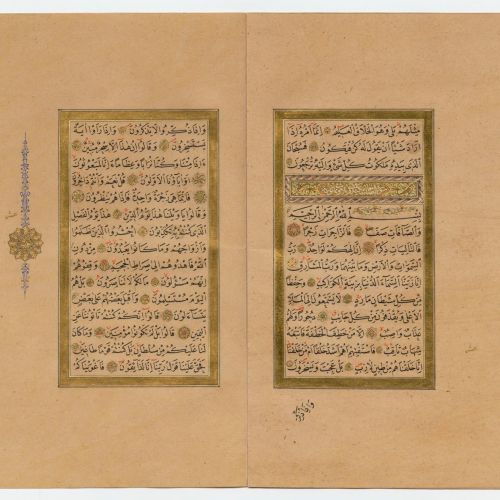 مِثْلَهُمْ بَلَى وَهُوَ الْخَلَّاقُ الْعَلِيمُ اِنَّمَا اَمْرُهُ اِذَا
اَرَادَ شَيْئًا اَنْ يَقُولَ لَهُ كُنْ فَيَكُونُ فَسُبْحَانَ
الَّذِي بِيَدِهِ مَلَكُوتُ كُلِّ شَيْءٍ وَاِلَيْهِ تُرْجَعُونَ
بِسْمِ اللهِ الرَّحْمَنِ الرَّحِيمِ
وَالصَّافَّاتِ صَفًّا فَالزَّاجِرَاتِ زَجْرًا
فَالتَّالِيَاتِ ذِكْرًا اِنَّ اِلَهَكُمْ لَوَاحِدٌ رَبُّ
السَّمَوَاتِ وَالْاَرْضِ وَمَا بَيْنَهُمَا وَرَبُّ الْمَشَارِقِ
اِنَّا زَيَّنَّا السَّمَاءَ الدُّنْيَا بِزِينَةٍ الْكَوَاكِبِ وَحِفْظًا
مِنْ كُلِّ شَيْطَانٍ مَارِدٍ لَا يَسَّمَّعُونَ اِلَى الْمَلَاِ
الْاَعْلَى وَيُقْذَفُونَ مِنْ كُلِّ جَانِبٍ دُحُورًا وَلَهُمْ
عَذَابٌ وَاصِبٌ اِلَّا مَنْ خَطِفَ الْخَطْفَةَ فَاَتْبَعَهُ
شِهَابٌ ثَاقِبٌ فَاسْتَفْتِهِمْ اَهُمْ اَشَدُّ خَلْقًا اَمْ مَنْ خَلَقْنَا
اِنَّا خَلَقْنَاهُمْ مِنْ طِينٍ لَازِبٍ بَلْ عَجِبْتَ وَيَسْخَرُونَ
واذا ذكروا
وَاِذَا ذُكِّرُوا لَا يَذْكُرُونَ وَاِذَا رَاَوْا اٰيَةً
يَسْتَسْخِرُونَ وَقَالُوا اِنْ هَذَا اِلَّا سِحْرٌ مُبِينٌ
ءَاِذَا مِتْنَا وَكُنَّا تُرَابًا وَعِظَامًا ءَاِنَّا لَمَبْعُوثُونَ
اَوَاٰبَاؤُنَا الْاَوَّلُونَ قُلْ نَعَمْ وَاَنْتُمْ دَاخِرُونَ
فَاِنَّمَا هِيَ زَجْرَةٌ وَاحِدَةٌ فَاِذَا هُمْ يَنْظُرُونَ
وَقَالُوا يَا وَيْلَنَا هَذَا يَوْمُ الدِّينِ هَذَا يَوْمُ الْفَصْلِ
الَّذِي كُنْتُمْ بِهِ تُكَذِّبُونَ اُحْشُرُوا الَّذِينَ ظَلَمُوا
وَاَزْوَاجَهُمْ وَمَا كَانُوا يَعْبُدُونَ مِنْ دُونِ
اللهِ فَاهْدُوهُمْ اِلَى صِرَاطِ الْجَحِيمِ وَقِفُوهُمْ
اِنَّهُمْ مَسْئُولُونَ مَا لَكُمْ لَا تَنَاصَرُونَ بَلْ هُمُ
الْيَوْمَ مُسْتَسْلِمُونَ وَاَقْبَلَ بَعْضُهُمْ عَلَى بَعْضٍ
يَتَسَاءَلُونَ قَالُوا اِنَّكُمْ كُنْتُمْ تَاْتُونَنَا عَنِ
الْيَمِينِ قَالُوا بَلْ لَمْ تَكُونُوا مُؤْمِنِينَ وَمَا كَانَ
لَنَا عَلَيْكُمْ مِنْ سُلْطَانٍ بَلْ كُنْتُمْ قَوْمًا طَاغِينَ
فَحَقَّ عَلَيْنَا قَوْلُ رَبِّنَا اِنَّا لَذَائِقُونَ فَاَغْوَيْنَاكُمْ